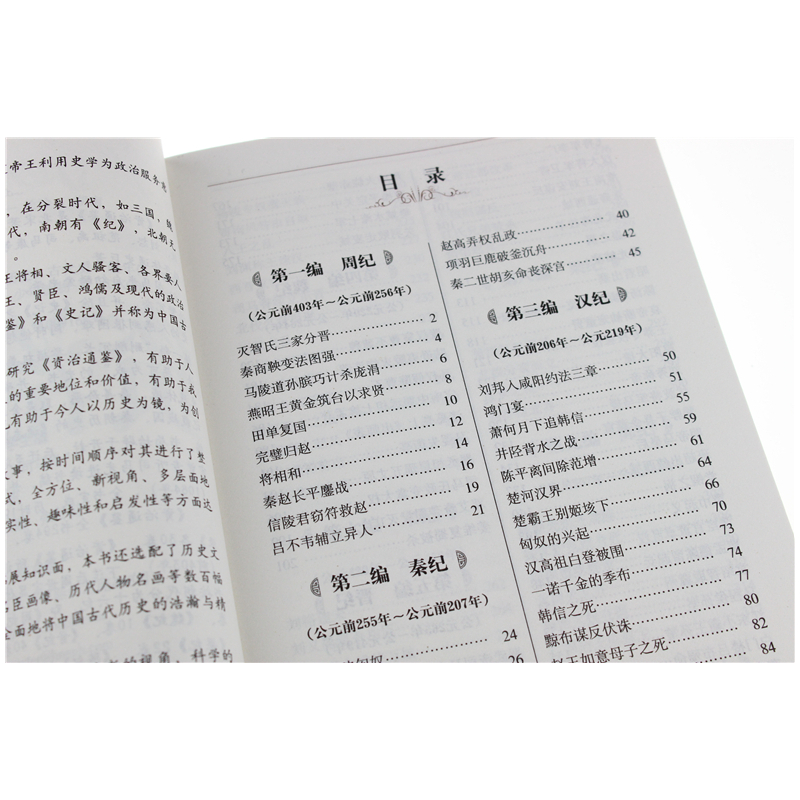 帝王利用史学为政治服务
，在分裂时代，如三国，魏
代，南朝有《纪》，北朝
王将相、文人骚客、各界要人
王、贤臣、鸿儒及现代的政治
鉴》和《史记》并称为中国古
研究《资治通鉴》，有助于人
的重要地位和价值，有助于我
有助于今人以历史为镜，为创
事，按时间顺序对其进行了整
式，全方位、新视角、多层面地
实性、趣味性和启发性等方面达
展知识面，本书还选配了历史文
臣画像、历代人物名画等数百幅
全面地将中国古代历史的浩瀚与精
的视角，科学的
目 录
第一编 周纪
（公元前403年～公元前256年）
灭智氏三家分晋……2
秦商鞅变法图强……4
马陵道孙膑巧计杀庞涓……6
燕昭王黄金筑台以求贤……8
田单复国……10
完璧归赵……12
将相和……14
秦赵长平鏖战……16
信陵君窃符救赵……19
吕不韦辅立异人……21
第二编 秦纪
（公元前255年～公元前207年）
……24
匈奴……26
赵高弄权乱政……40
项羽巨鹿破釜沉舟……42
秦二世胡亥命丧深宫……45
第三编 汉纪
（公元前206年～公元219年）
刘邦入咸阳约法三章……50
鸿门宴……51
萧何月下追韩信……55
井陉背水之战……59
陈平离间除范增……61
楚河汉界……64
楚霸王别姬垓下……66
匈奴的兴起……70
汉高祖白登被围……73
一诺千金的季布……74
韩信之死……77
黥布谋反伏诛……80
赵王如意母子之死……82
……84